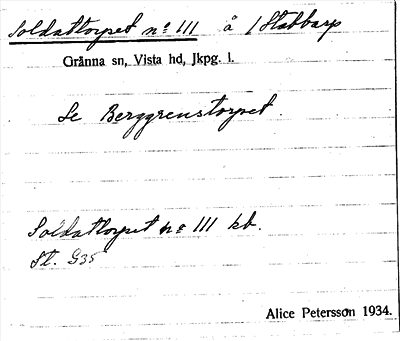 Soldattorpet nº 111 å Stabbarp
Gränna sn, Vista hd, Jkpg. l.
Se Berggrenstorpet.
Soldattorpet nº 111 kb.
St. G35
Alice Petersson 1934.